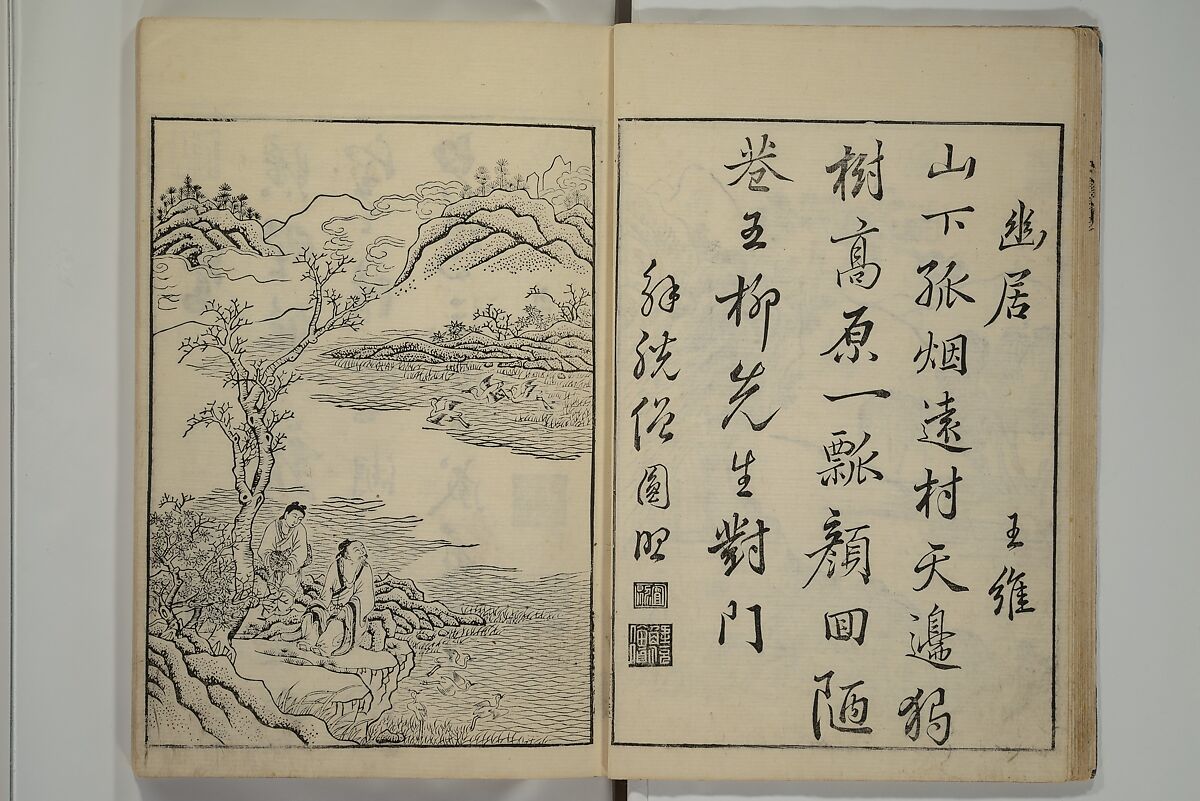 幽居 王維
山下孤烟遠村天邊独
樹高原一瓢顏回陋
巷五柳先生對門
解脱僧圓照